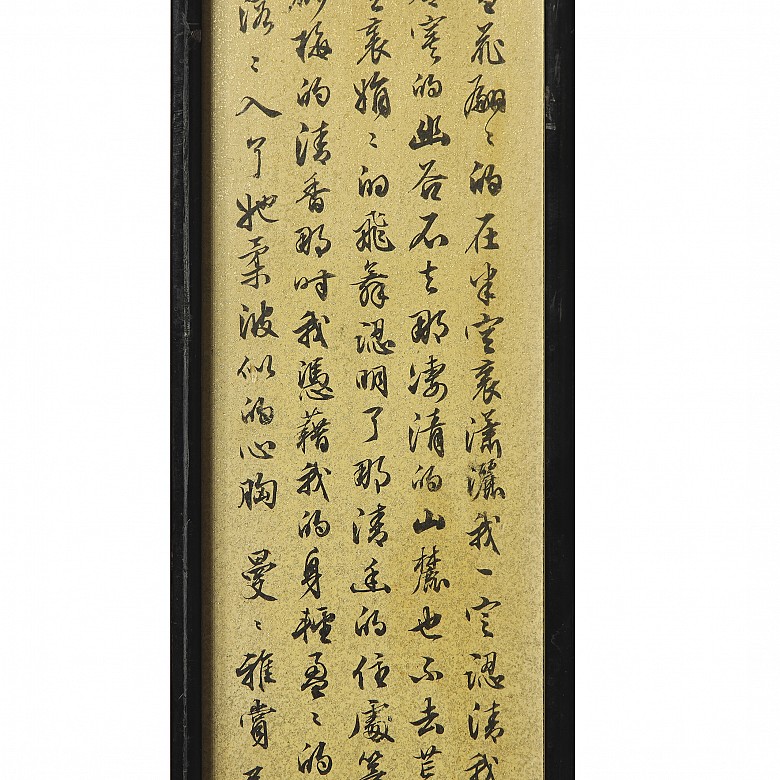 花翩々的在半空裏瀟灑我一定認清我
寞的幽谷不去那凄清的山麓也不去荒
裏娟々的飛舞認明了那清幽的住處等
砂梅的清香那時我憑藉我的身輕盈々的
溶々入了她柔波似的心胸 曼々雅賞